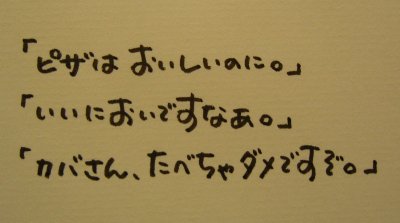 「ピザは おいしいのに。」
「いいにおいですなあ。」
「カバさん、たべちゃダメですぞ。」